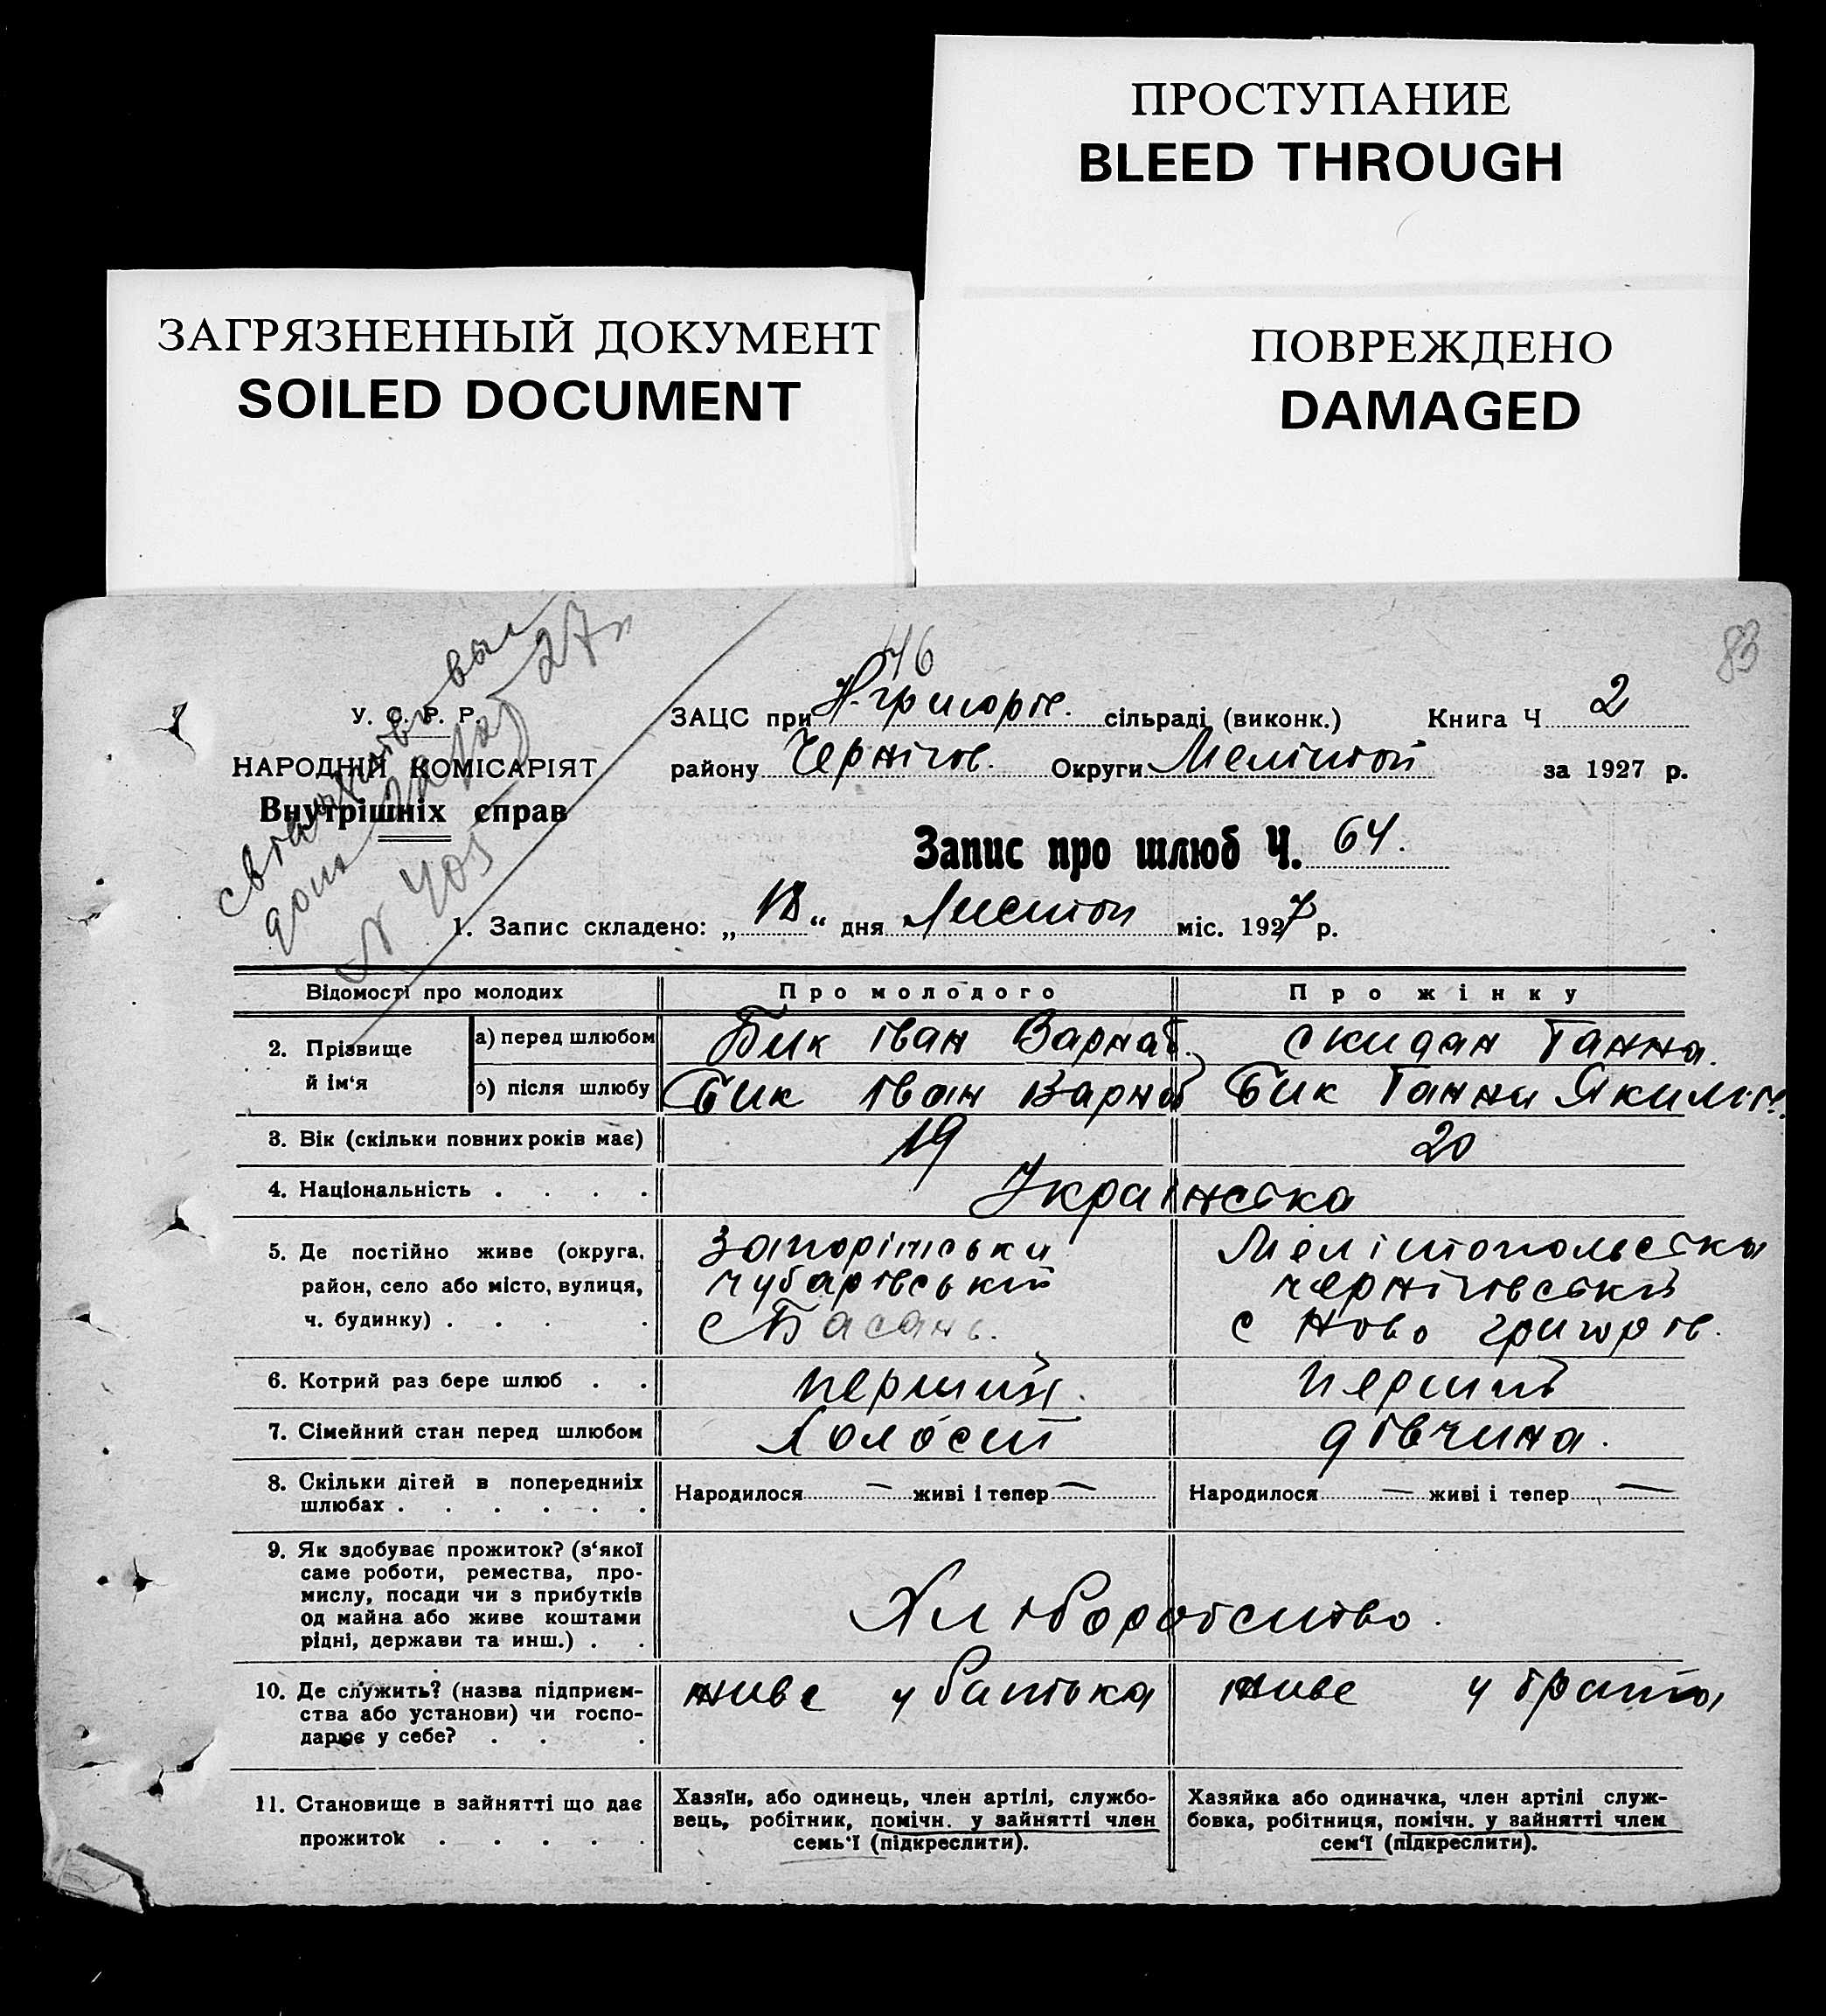 ПРОСТУПАНИЕ
BLEED THROUGH
ЗАГРЯЗНЕННЫЙ ДОКУМЕНТ
SOILED DOCUMENT
ПОВРЕЖДЕНО
DAMAGED
83
46
У. С. Р. Р.
НАРОДНІЙ КОМІСАРІЯТ
Внутрішніх справ
27
N 405
ЗАЦС при Н-григорів. сільраді (виконк.) Книга Ч 2
району Чернігов. Округи Мелітоп за 1927 р.
Запис про шлюб Ч. 64.
1. Запис складено: „18“ дня Листоп міс. 1927 р.
Відомості про молодих Про молодого Про жінку
2. Прізвище й ім'я
а) перед шлюбом Бик Іван Варнаб. Скидан Ганна.
б) після шлюбу Бик Іван Варнаб Бик Ганна Якимів.
3. Вік (скільки повних років має) 19 20
4. Національність . . . . Українська
5. Де постійно живе (округа, Запоріжська Мелітопольська
район, село або місто, вулиця, Чубарівський Чернігівський
ч. будинку) . . . . с Басань. с Ново григорів.
6. Котрий раз бере шлюб . . перший. перший
7. Сімейний стан перед шлюбом Холостий дівчина.
8. Скільки дітей в попередніх Народилося — живі і тепер — Народилося — живі і тепер —
шлюбах . . . . . .
9. Як здобуває прожиток? (з'якої
саме роботи, ремества, про-
мислу, посади чи з прибутків
од майна або живе коштами
рідні, держави та инш.) . . Хліборобство.
10. Де служить? (назва підприєм- живе у батька живе у брата
ства або установи) чи госпо-
дарює у себе? . . .
11. Становище в зайнятті що дає
прожиток . . . . .
Хазяїн, або одинець, член артілі, службо-
вець, робітник, помічн. у зайнятті член
семь'ї (підкреслити).
Хазяйка або одиначка, член артілі служ-
бовка, робітниця, помічн. у зайнятті член
сем'ї (підкреслити).